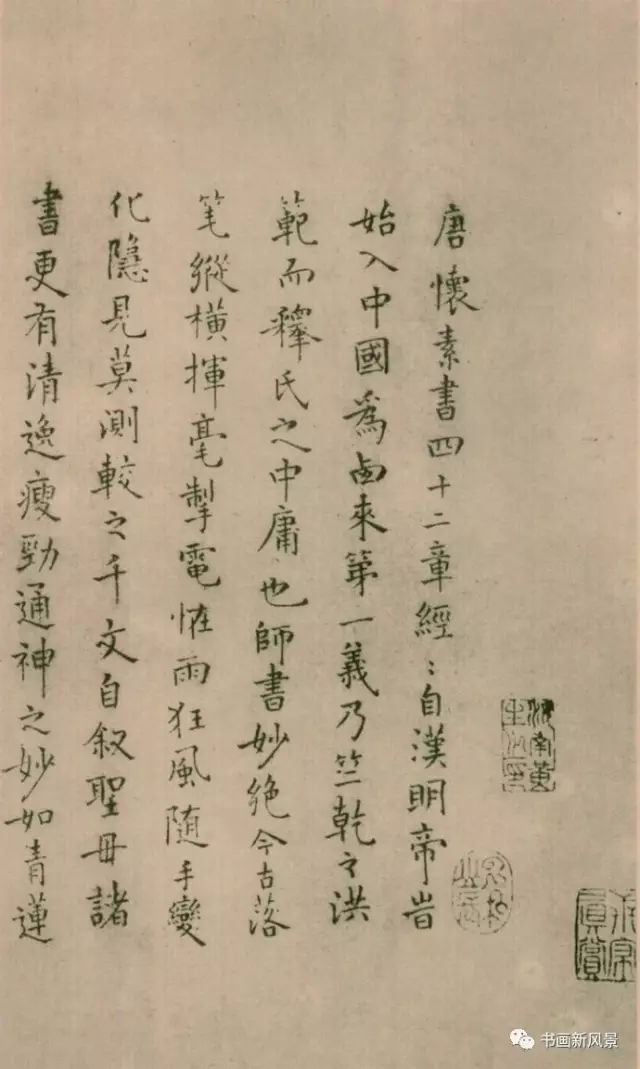 唐懷素書四十二章經〻自漢明帝旹
始入中國為卥來第一義乃竺乾之洪
範而釋氏之中庸也師書妙絶今古落
筆縱橫揮毫掣電恠雨狂風随手變
化隱見莫測較之千文自敘聖母諸
書更有清逸瘦勁通神之妙如青蓮
书画新风景